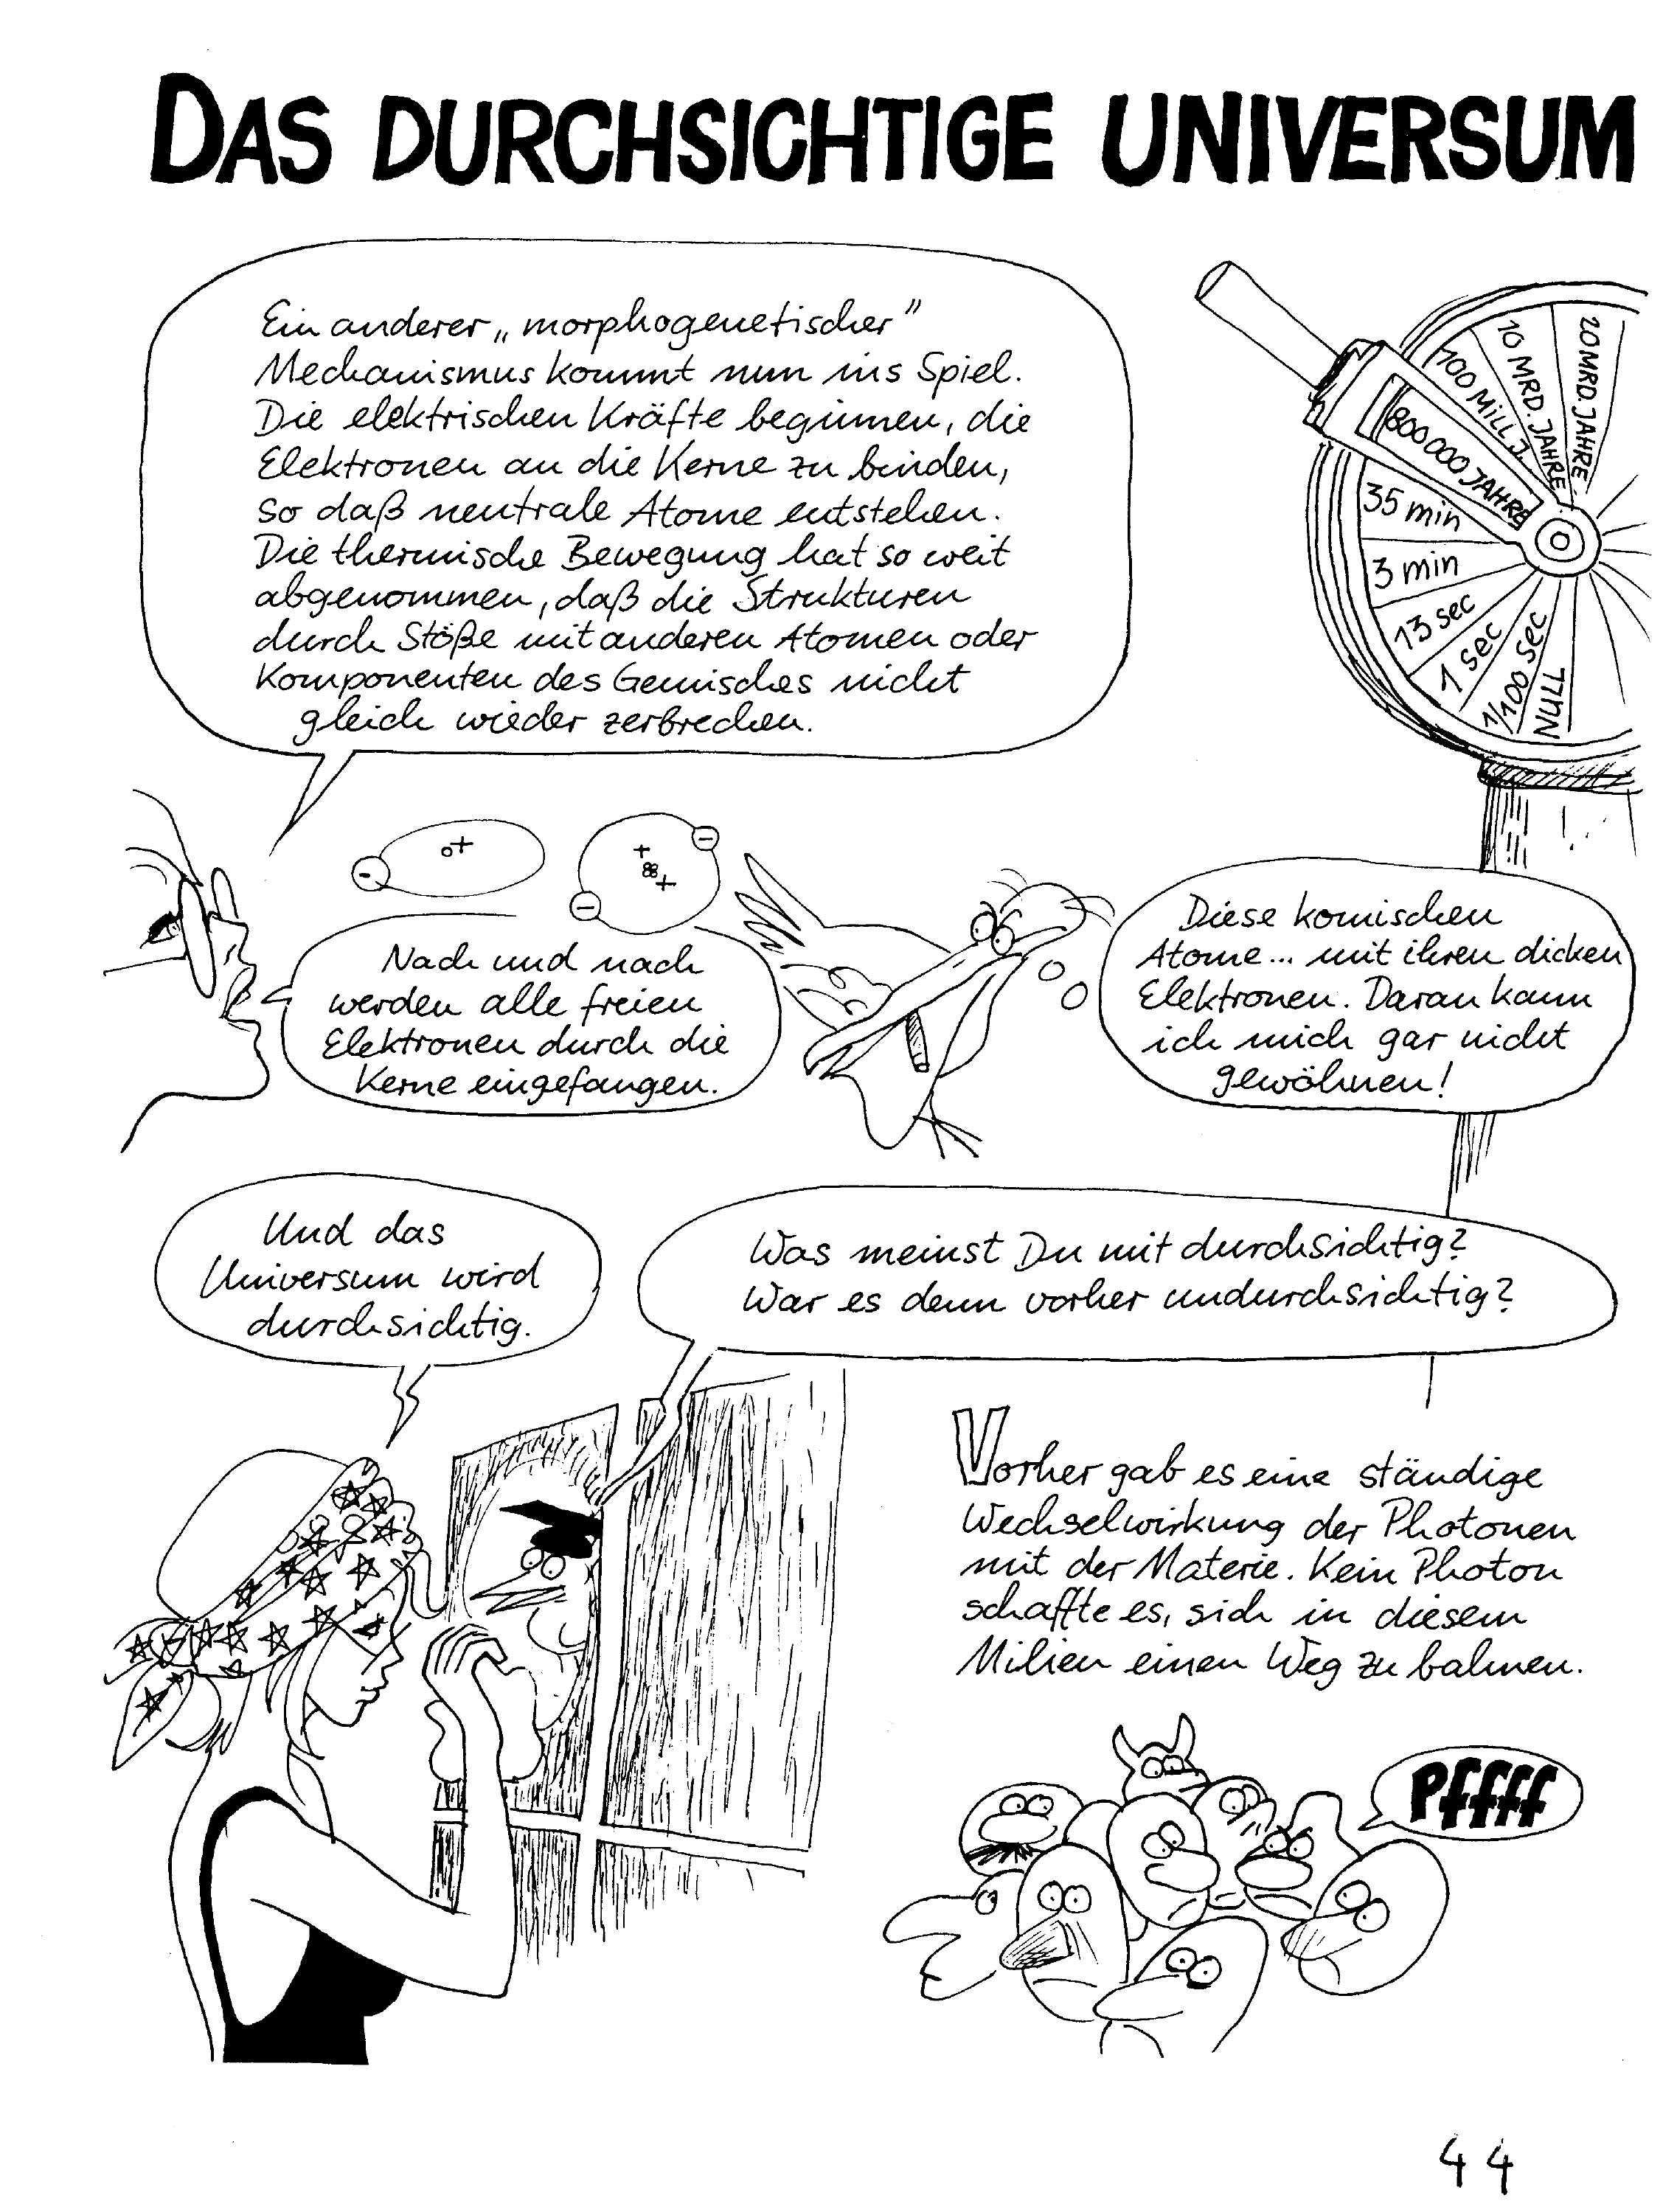 DAS DURCHSICHTIGE UNIVERSUM
Ein anderer „morphogenetischer”
Mechanismus kommt nun ins Spiel.
Die elektrischen Kräfte beginnen, die
Elektronen an die Kerne zu binden,
so daß neutrale Atome entstehen.
Die thermische Bewegung hat so weit
abgenommen, daß die Strukturen
durch Stöße mit anderen Atomen oder
Komponenten des Gemisches nicht
gleich wieder zerbrechen.
20 MRD. JAHRE
10 MRD. JAHRE
100 Mill J.
800 000 JAHRE
35 min
3 min
13 sec
1 sec
1/100 sec
NULL
Nach und nach
werden alle freien
Elektronen durch die
Kerne eingefangen.
Diese komischen
Atome... mit ihren dicken
Elektronen. Daran kann
ich mich gar nicht
gewöhnen!
Und das
Universum wird
durchsichtig.
Was meinst Du mit durchsichtig?
War es denn vorher undurchsichtig?
Vorher gab es eine ständige
Wechselwirkung der Photonen
mit der Materie. Kein Photon
schaffte es, sich in diesem
Milieu einen Weg zu bahnen.
Pffff
44